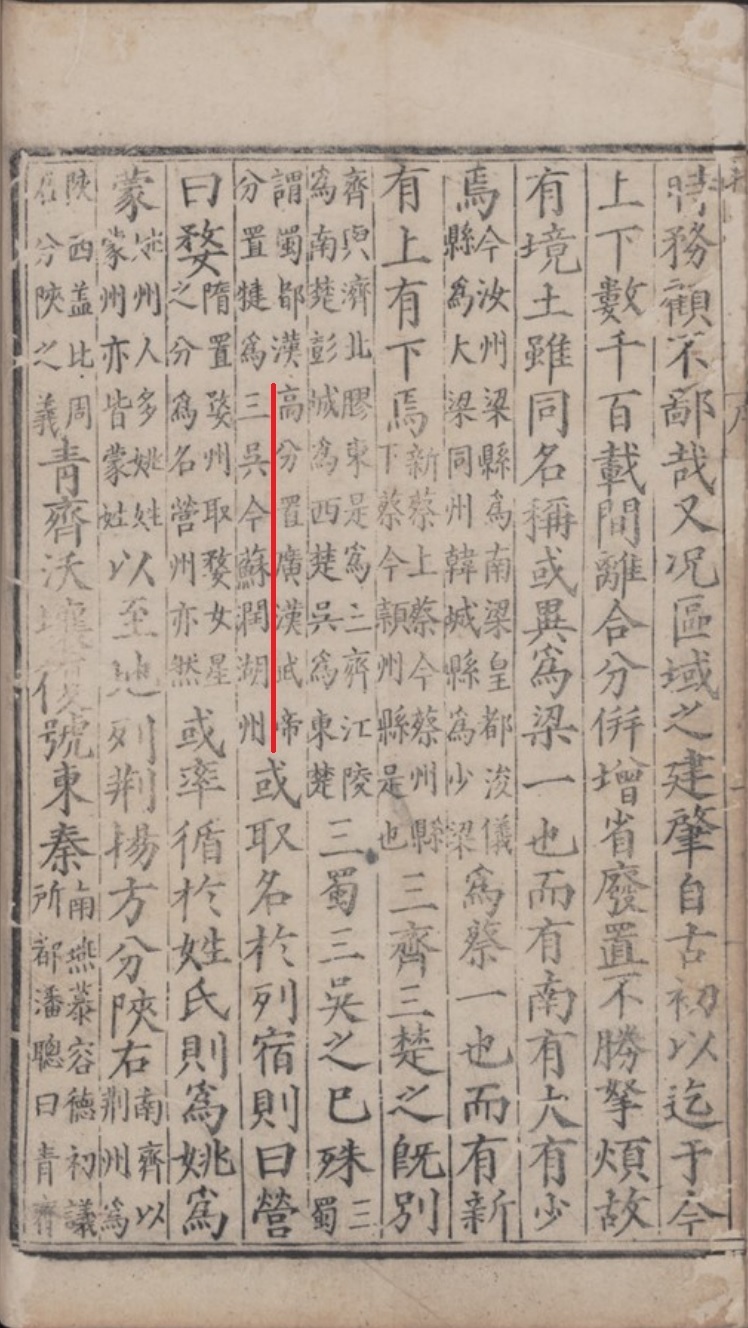 時務顧不鄙哉又况區域之建肇自古初以迄于今
上下數千百載間離合分併增省廢置不勝拏煩故
有境土雖同名稱或異爲梁一也而有南有大有少
焉今汝州梁縣爲南梁皇都浚儀縣爲大梁同州韓城縣爲少梁爲蔡一也而有新
有上有下焉新蔡上蔡今蔡州縣下蔡今頴州縣是也三齊三楚之旣別
齊與濟北膠東是爲三齊江陵爲南楚彭城爲西楚吳爲東楚三蜀三吳之已殊三蜀
謂蜀郡漢高分置廣漢武帝分置犍爲三吳今蘇潤湖州或取名於列宿則曰營
曰婺隋置婺州取婺女星之分爲名營州亦然或率循於姓氏則爲姚爲
蒙姚州人多姚姓蒙州亦皆蒙姓以至地列荆楊方分陝右南齊以荆州爲
陝西盖比周召分陝之義青齊沃壤復號東秦南燕慕容德初議所都潘聰曰青齊